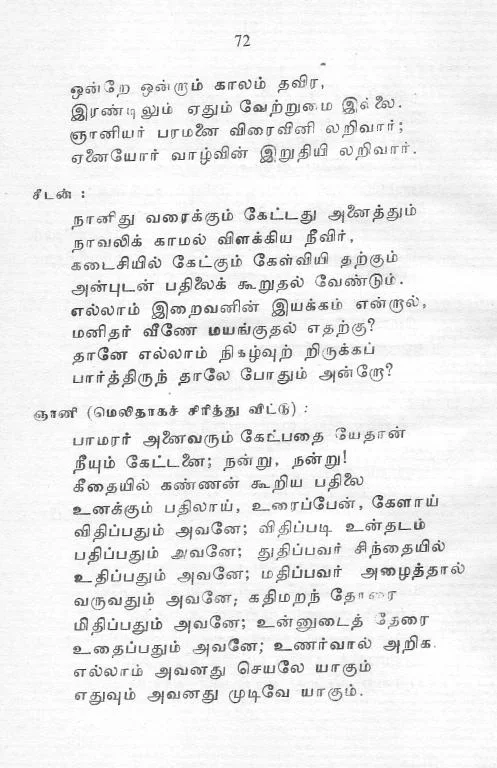 72
ஒன்றே ஒன்றும் காலம் தவிர,
இரண்டிலும் ஏதும் வேற்றுமை இல்லை.
ஞானியர் பரமனை விரைவினி லறிவார்;
ஏனையோர் வாழ்வின் இறுதியி லறிவார்.
சீடன் :
நானிது வரைக்கும் கேட்டது அனைத்தும்
நாவலிக் காமல் விளக்கிய நீவிர்,
கடைசியில் கேட்கும் கேள்வியி தற்கும்
அன்புடன் பதிலைக் கூறுதல் வேண்டும்.
எல்லாம் இறைவனின் இயக்கம் என்றால்,
மனிதர் வீணே மயங்குதல் எதற்கு?
தானே எல்லாம் நிகழ்வுற் றிருக்கப்
பார்த்திருந் தாலே போதும் அன்றோ?
ஞானி (மெலிதாகச் சிரித்து விட்டு) :
பாமரர் அனைவரும் கேட்பதை யேதான்
நீயும் கேட்டனை; நன்று, நன்று!
கீதையில் கண்ணன் கூறிய பதிலை
உனக்கும் பதிலாய், உரைப்பேன், கேளாய்
விதிப்பதும் அவனே; விதிப்படி உன்தடம்
பதிப்பதும் அவனே; துதிப்பவர் சிந்தையில்
உதிப்பதும் அவனே; மதிப்பவர் அழைத்தால்
வருவதும் அவனே; கதிமறந் தோரை
மிதிப்பதும் அவனே; உன்னுடைத் தேரை
உதைப்பதும் அவனே; உணர்வால் அறிக.
எல்லாம் அவனது செயலே யாகும்
எதுவும் அவனது முடிவே யாகும்.